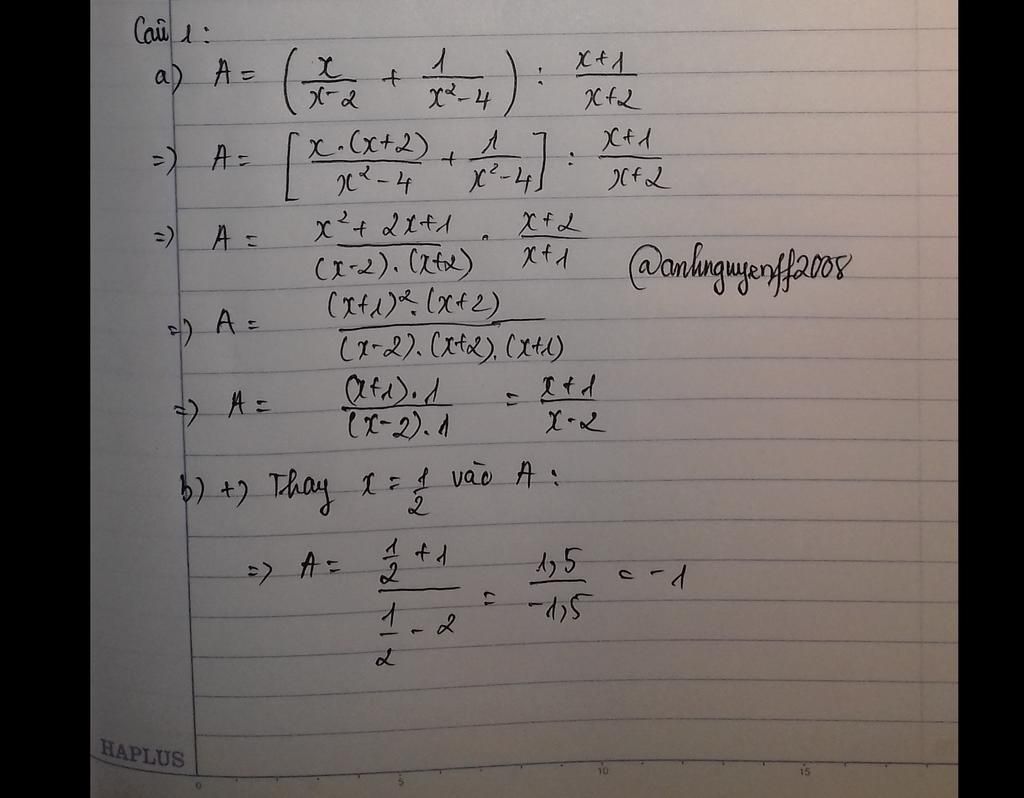 Câu 1:
a) A = ( x/(x-2) + 1/(x²-4) ) : (x+1)/(x+2)
=> A = [ x.(x+2)/(x²-4) + 1/(x²-4) ] : (x+1)/(x+2)
=> A = (x²+2x+1)/((x-2).(x+2)) . (x+2)/(x+1)
@anhnguyenff2008
=> A = (x+1)².(x+2)/((x-2).(x+2).(x+1))
=> A = (x+1).1/((x-2).1) = (x+1)/(x-2)
b) +) Thay x = 1/2 vào A :
=> A = (1/2 + 1)/(1/2 - 2) = 1,5/-1,5 = -1
HAPLUS
0 5 10 15